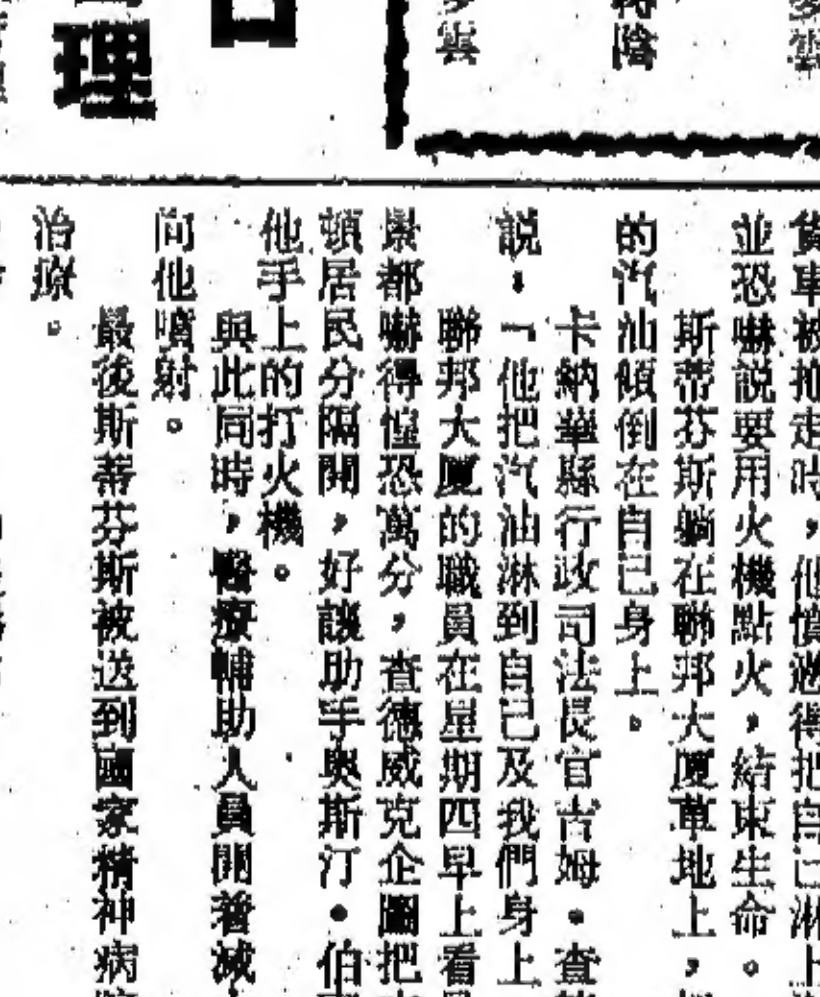 多雲
陰
理
貨車被拖走時，他憤怒得把自己淋上
並恐嚇説要用火機點火，結束生命。
斯蒂芬斯躺在聯邦大廈草地上，
的汽油傾倒在自己身上。
卡納華縣行政司法長官吉姆•查
説，「他把汽油淋到自己及我們身上
聯邦大廈的職員在星期四早上看
景都嚇得惶恐萬分，查德威克企圖把
頓居民分隔開，好讓助手奥斯汀•伯
他手上的打火機。
與此同時，醫療輔助人員開着滅
向他噴射。
最後斯蒂芬斯被送到國家精神病
治療。